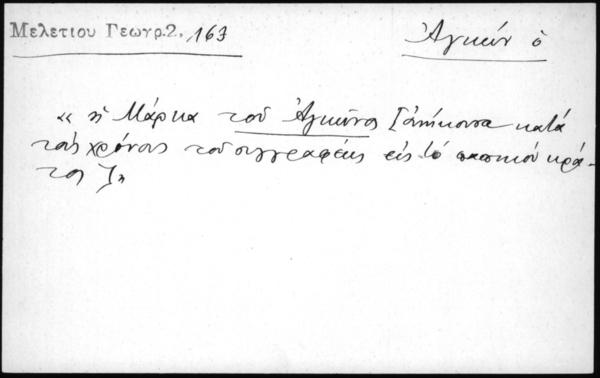 Μελετίου Γεωγρ.2, 163
Ἀγκών ὁ
« ἡ Μάρκα τοῦ Ἀγκῶνος [ἀνήκουσα κατὰ
τοὺς χρόνους τοῦ συγγραφέως εἰς τὸ παπικὸν κρά-
τος]»